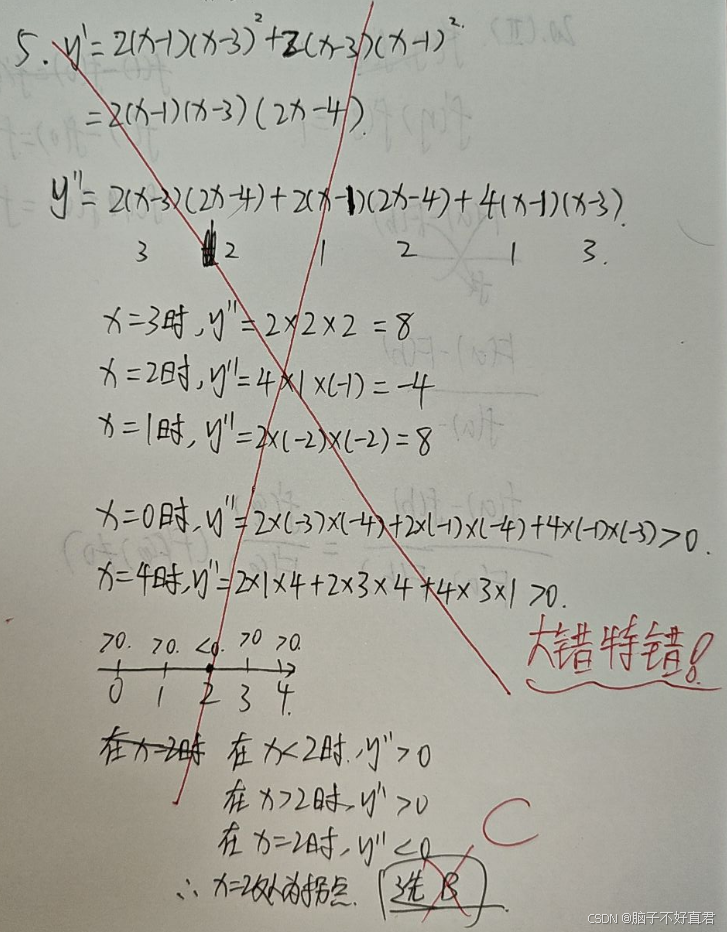 5. y'=2(x-1)(x-3)²+2(x-3)(x-1)².
=2(x-1)(x-3)(2x-4).
y''=2(x-3)(2x-4)+2(x-1)(2x-4)+4(x-1)(x-3).
3 2 1 2 1 3.
x=3时,y''=2×2×2=8
x=2时,y''=4×1×(-1)=-4
x=1时,y''=2×(-2)×(-2)=8
x=0时,y''=2×(-3)×(-4)+2×(-1)×(-4)+4×(-1)×(-3)>0.
x=4时,y''=2×1×4+2×3×4+4×3×1>0.
>0. >0. <0. >0 >0.
0 1 2 3 4.
大错特错!
在x=2时 在x<2时,y''>0
在x>2时,y''>0
在x=2时,y''<0
C
∴x=2处为拐点. 选B.
CSDN @脑子不好直君